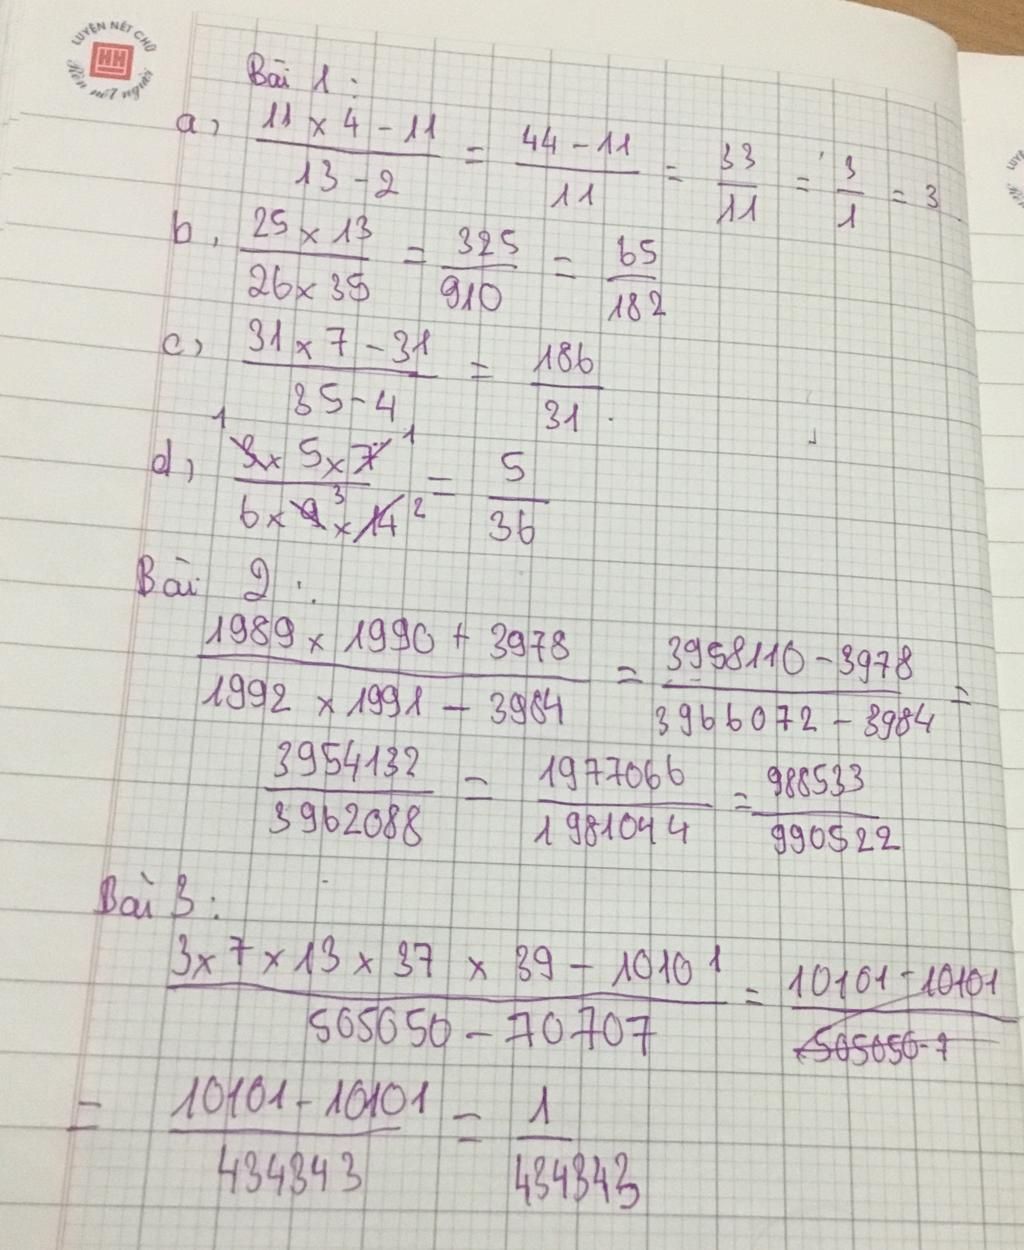 LUYỆN NÉT CHỮ
HH
Rèn nết người
Bài 1:
a, 11 x 4 - 11 / 13 - 2 = 44 - 11 / 11 = 33 / 11 = 3 / 1 = 3.
b, 25 x 13 / 26 x 35 = 325 / 910 = 65 / 182
c, 31 x 7 - 31 / 35 - 4 = 186 / 31.
d, 1 3 x 5 x 7 1 / 6 x 9 3 x 14 2 = 5 / 36
Bài 2:
1989 x 1990 + 3978 / 1992 x 1991 - 3984 = 3958110 - 3978 / 3966072 - 3984 =
3954132 / 3962088 = 1977066 / 1981044 = 988533 / 990522
Bài 3:
3 x 7 x 13 x 37 x 39 - 10101 / 505050 - 70707 = 10101 - 10101 / 505050 - 7
= 10101 - 10101 / 434343 = 1 / 434343